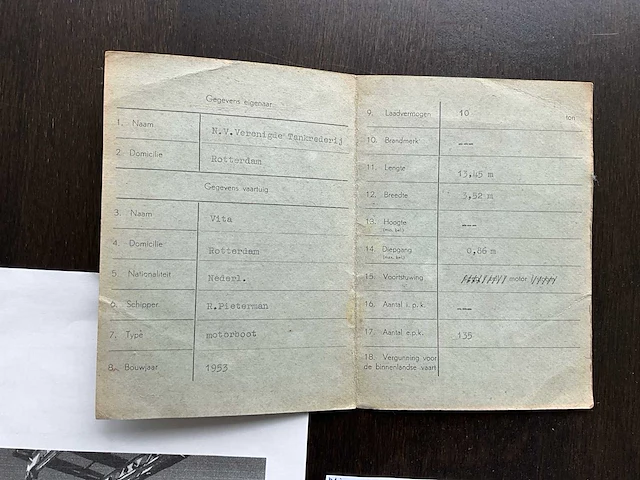 Gegevens eigenaar
1. Naam N.V. Verenigde Tankrederij
2. Domicilie Rotterdam
Gegevens vaartuig
3. Naam Vita
4. Domicilie Rotterdam
5 Nationaliteit Nederl.
6. Schipper R.Pieterman
7. Type motorboot
8. Bouwjaar 1953
9. Laadvermogen 10 ton
10. Brandmerk ---
11. Lengte 13,45 m
12. Breedte 3,52 m
13. Hoogte ---
14. Diepgang 0,86 m
15. Voortstuwing motor
16. Aantal i. p. k. ---
17. Aantal e.p.k. 135
18. Vergunning voor
de binnenlandse vaart